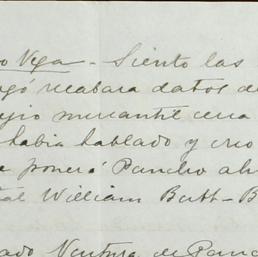 o Vega - Siento las
gó recabara datos de
gio mercantil cuu
habia hablado y creo
e ponerá Pancho ah
tal William Butt - B
ado Ventura de Panc